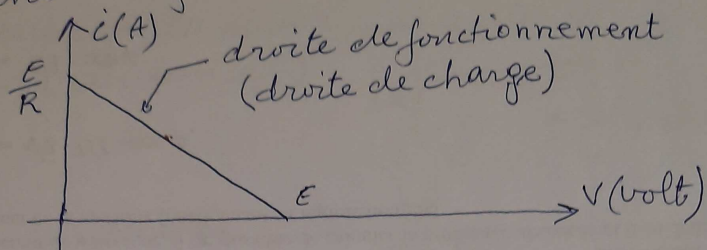 i(A)
droite de fonctionnement
(droite de charge)
E
R
E
V(volt)